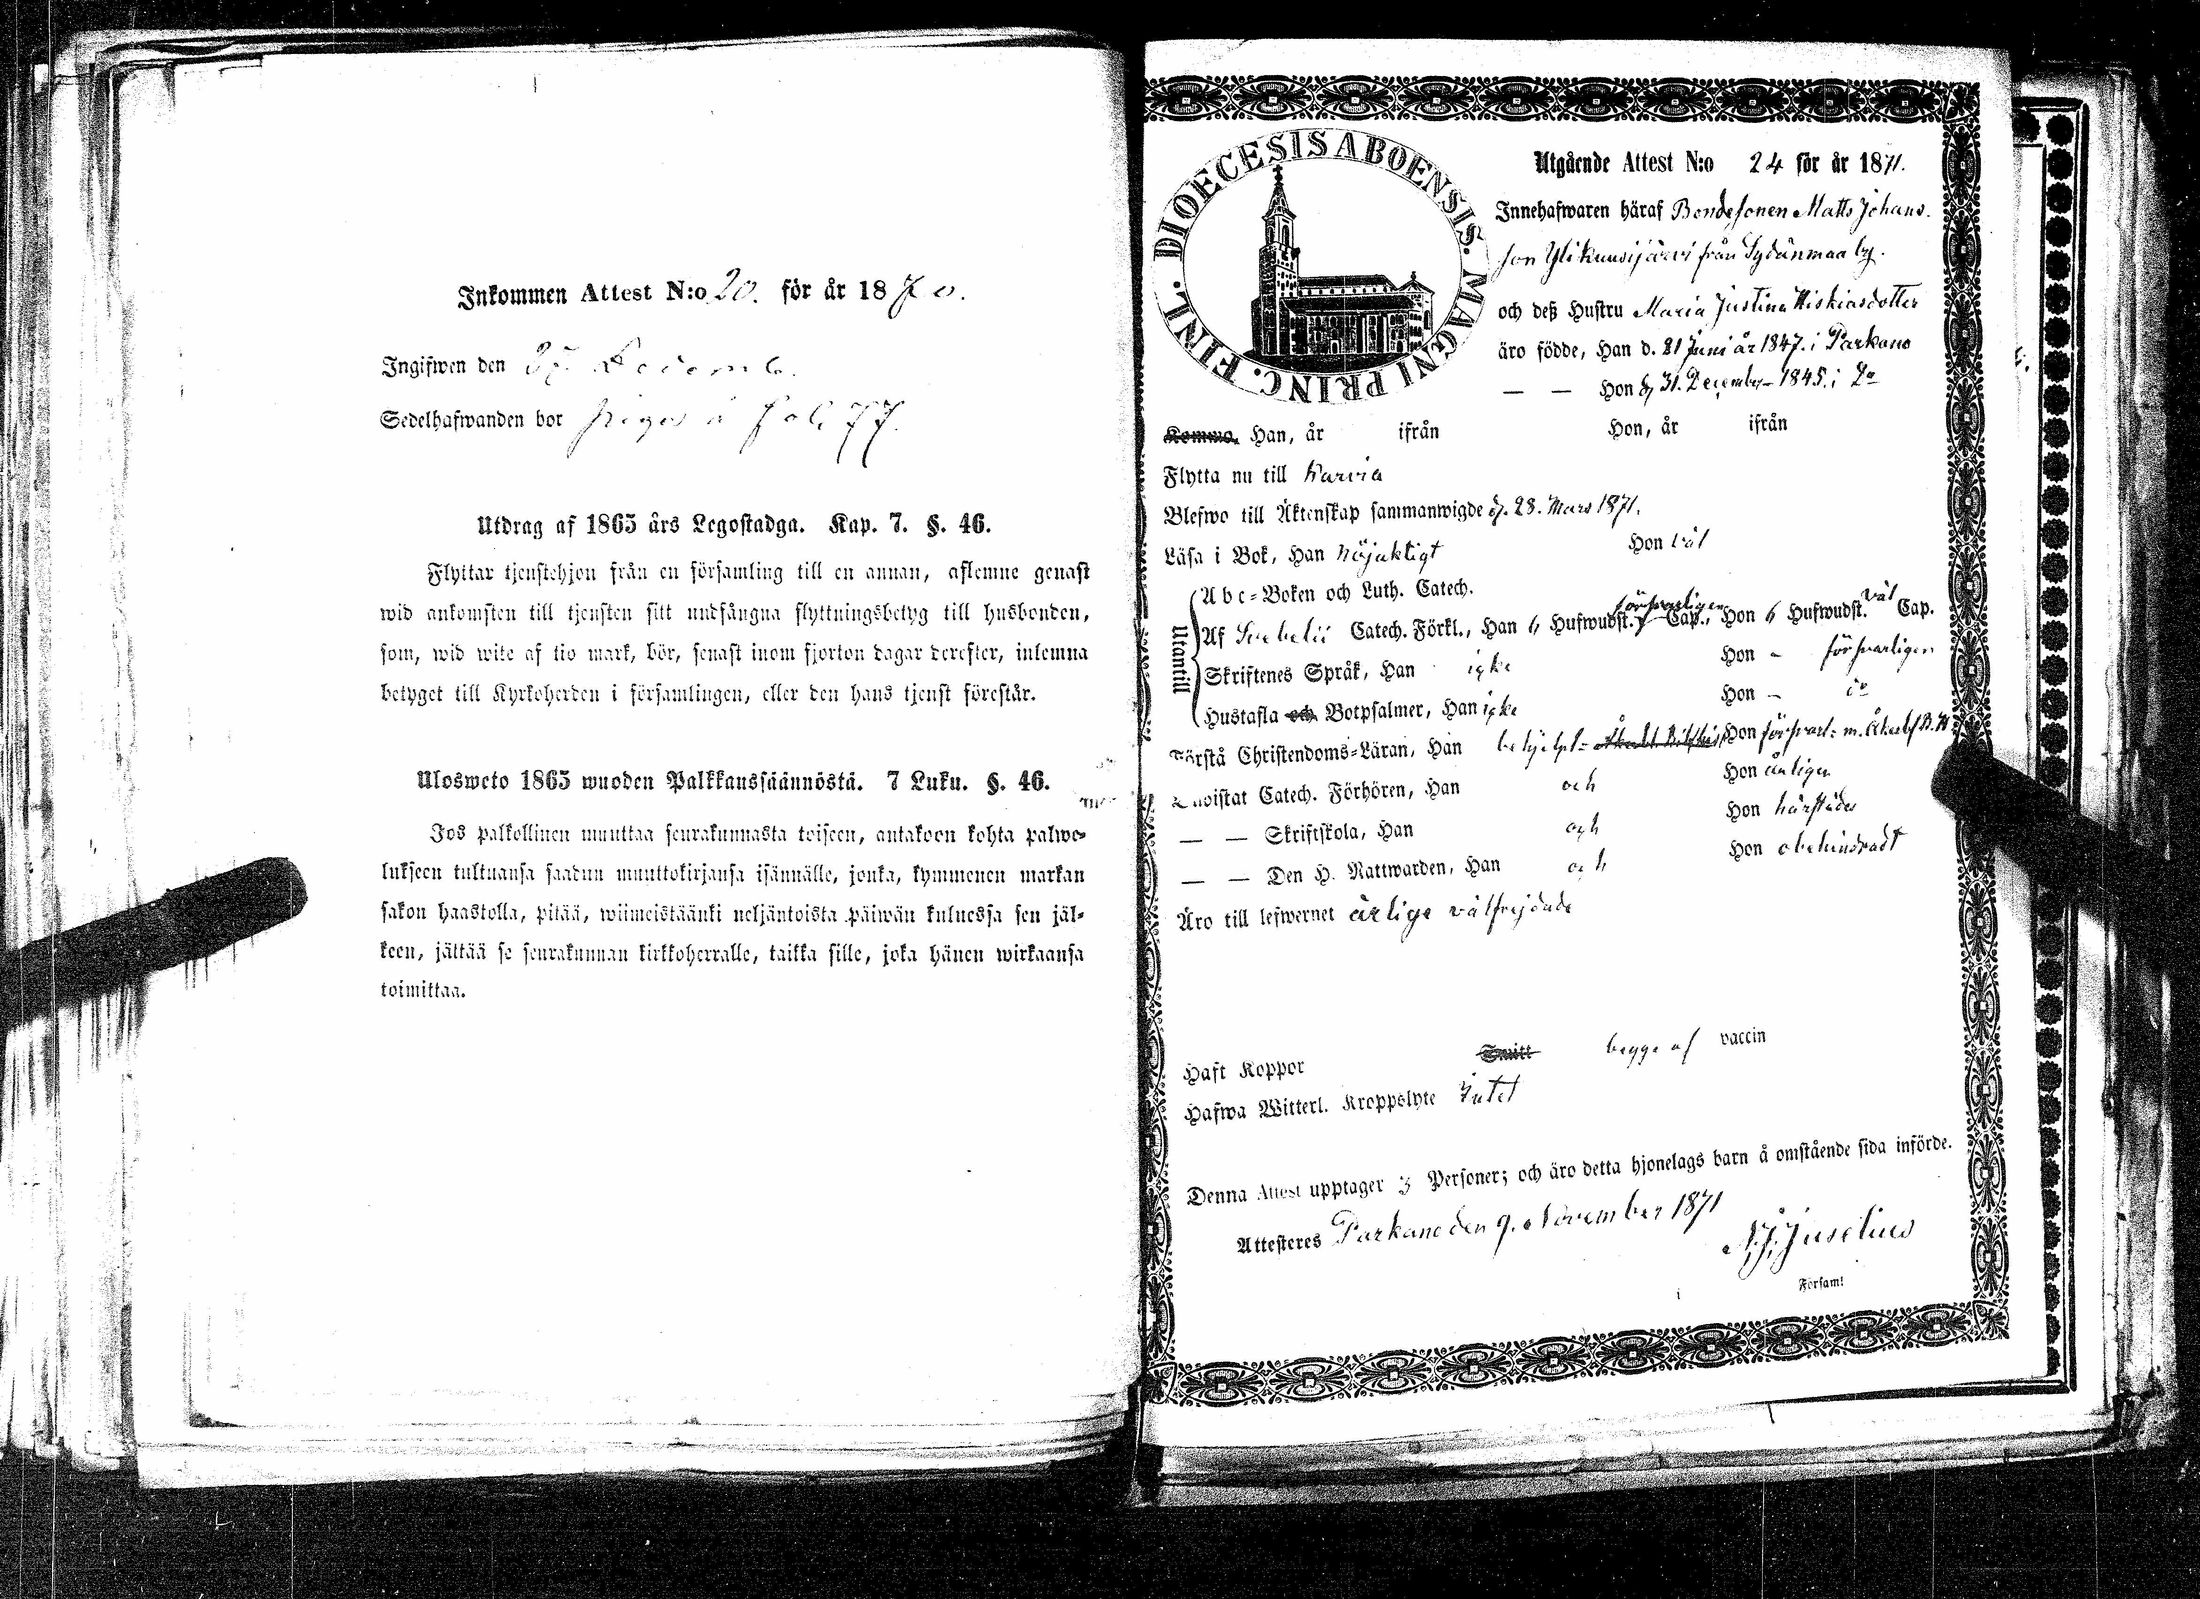 Inkommen Attest N:o 20. för år 1870.
Ingifwen den 27 Decemb.
Sedelhafwanden bor
Utdrag af 1865 års Legostadga. Kap. 7. §. 46.
Flyttar tjenstehjon från en församling till en annan, aflemne genast
wid ankomsten till tjensten sitt undfångna flyttningsbetyg till husbonden,
som, wid wite af tio mark, bör, senast inom fjorton dagar derefter, inlemna
betyget till Kyrkoherden i församlingen, eller den hans tjenst förestår.
Ulosweto 1865 wuoden Palkkaussäännöstä. 7 Luku. §. 46.
Jos palkollinen muuttaa seurakunnasta toiseen, antakoen kohta palwe-
lukseen tultuansa saadun muuttokirjansa isännälle, jonka, kymmenen markan
sakon haastolla, pitää, wiimeistäänki neljäntoista päiwän kuluessa sen jäl-
keen, jättää se seurakunnan kirkkoherralle, taikka sille, joka hänen wirkaansa
toimittaa.
DIOECESIS ABOENSIS. MAGNI PRINC. FINL.
Utgående Attest N:o 24 för år 1871.
Innehafwaren häraf Bondesonen Matts Johans-
son Ylikuusijärvi från Sydänmaa by.
och deß Hustru Maria Justina Hiskiasdotter
äro födde, Han d. 21 Juni år 1847. i Parkano
— — Hon d. 31. December 1845. i Do
Komma, Han, år ifrån Hon, år ifrån
Flytta nu till Karvia
Blefwo till Äktenskap sammanwigde d. 28. Mars 1871.
Läsa i Bok, Han nöjaktigt Hon väl
Utantill
Abc-Boken och Luth. Catech.
Af Svebelii Catech. Förkl., Han 6 Hufwudst. försvarligen Cap., Hon 6 Hufwudst. väl Cap.
Skriftenes Språk, Han icke Hon - försvarligen
Hustafla och Botpsalmer, Han icke Hon - do
Förstå Christendoms-Läran, Han behjelpl- Hon försvarl: m.
Bewistat Catech. Förhören, Han och Hon årligen
— — Skriftskola, Han och Hon härstädes
— — Den H. Nattwarden, Han och Hon obehindradt
Äro till lefwernet ärlige välfrejdade
Haft Koppor Smitt begge af vaccin
Hafwa Witterl. Kroppslyte Intet
Denna Attest upptager 3 Personer; och äro detta hjonelags barn å omstående sida införde.
Attesteres Parkano den 9. November 1871
Juselius
Församl